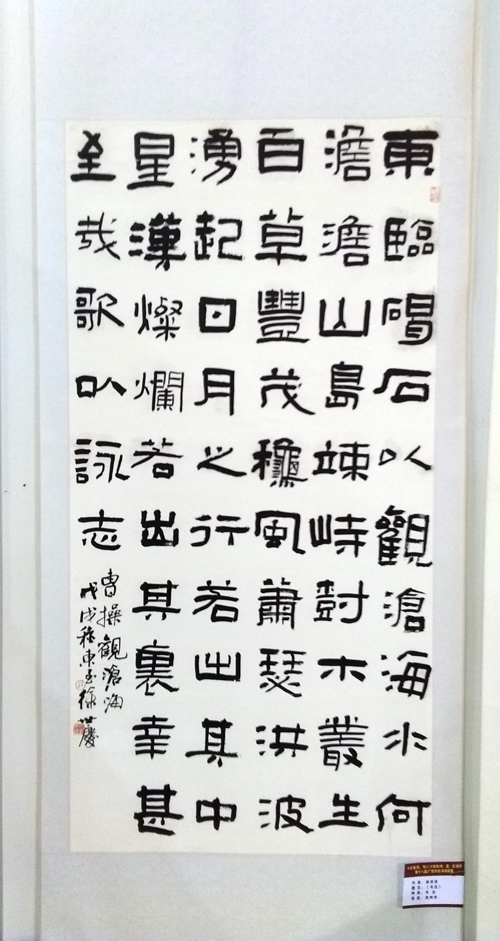 東臨碣石以觀滄海水何
澹澹山島竦峙尌木叢生
百草豐茂穐風蕭瑟洪波
湧起日月之行若出其中
星漢燦爛若出其裏幸甚
至哉歌以詠志
曹操觀滄海
戊戌穐東玉徐世慶